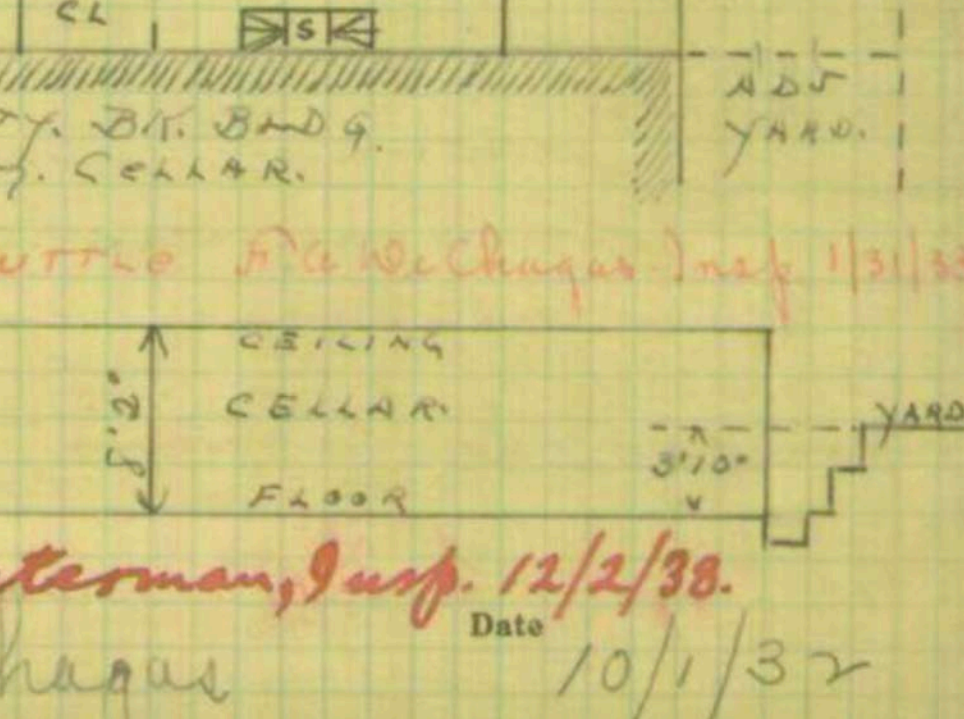 CL
S
ADJ
YARD.
TY. BK. BLDG.
CELLAR.
UTTLE F A DeChagas Insp 1/31/33
CEILING
8'2"
CELLAR.
YARD
3'10"
FLOOR
terman, Insp. 12/2/38.
Date
hagas 10/1/32